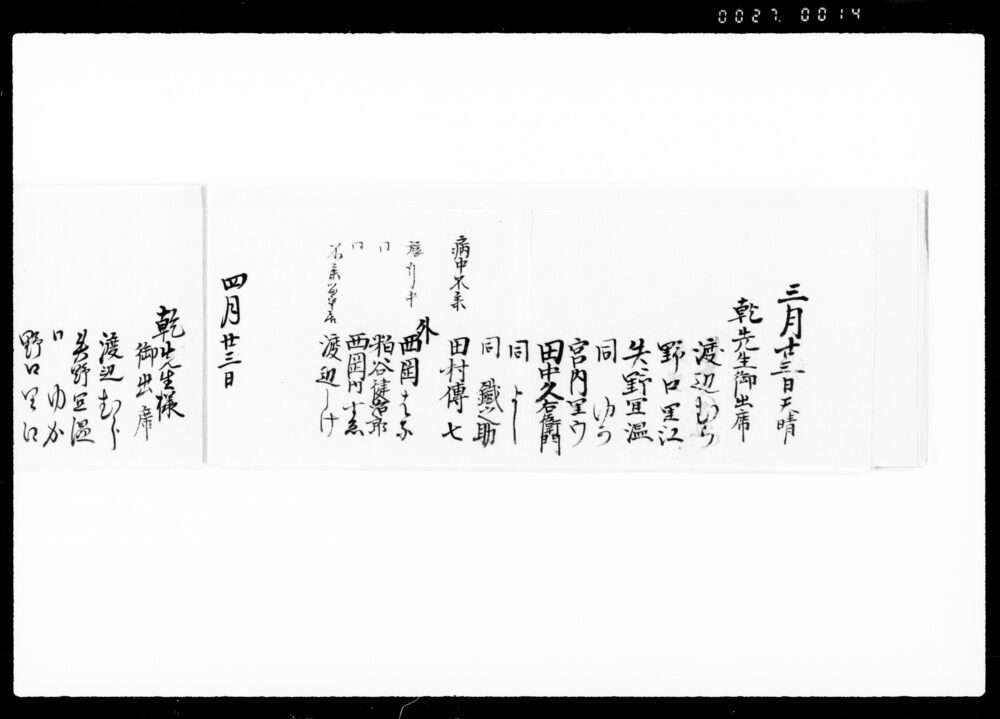 0027.0014
三月十三日天晴
乾先生御出席
渡辺むら
野口里江
矢野宜温
同 ゆう
宮内里う
田中久右衛門
同 よし
同 鐵之助
病中不参 田村傳七
外
旅行中 西岡はる
〃 粕谷健治郎
〃 西岡内
不参 渡辺しけ
四月廿三日
乾先生様
御出席
渡辺むら
矢野宜温
〃 ゆか
野口里江